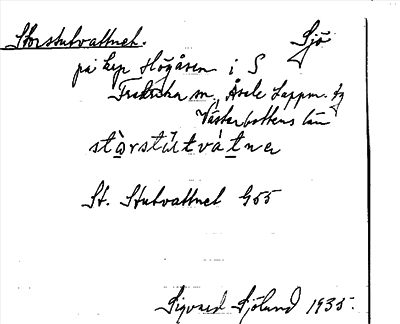 Storstutvattnet. Sjö
på kcp Högåsen i S
Fredrika sn, Åsele Lappm. tg
Västerbottens län
stòrstútvátner
St. Stutvattnet G55
Sigvard Sjölund 1935.